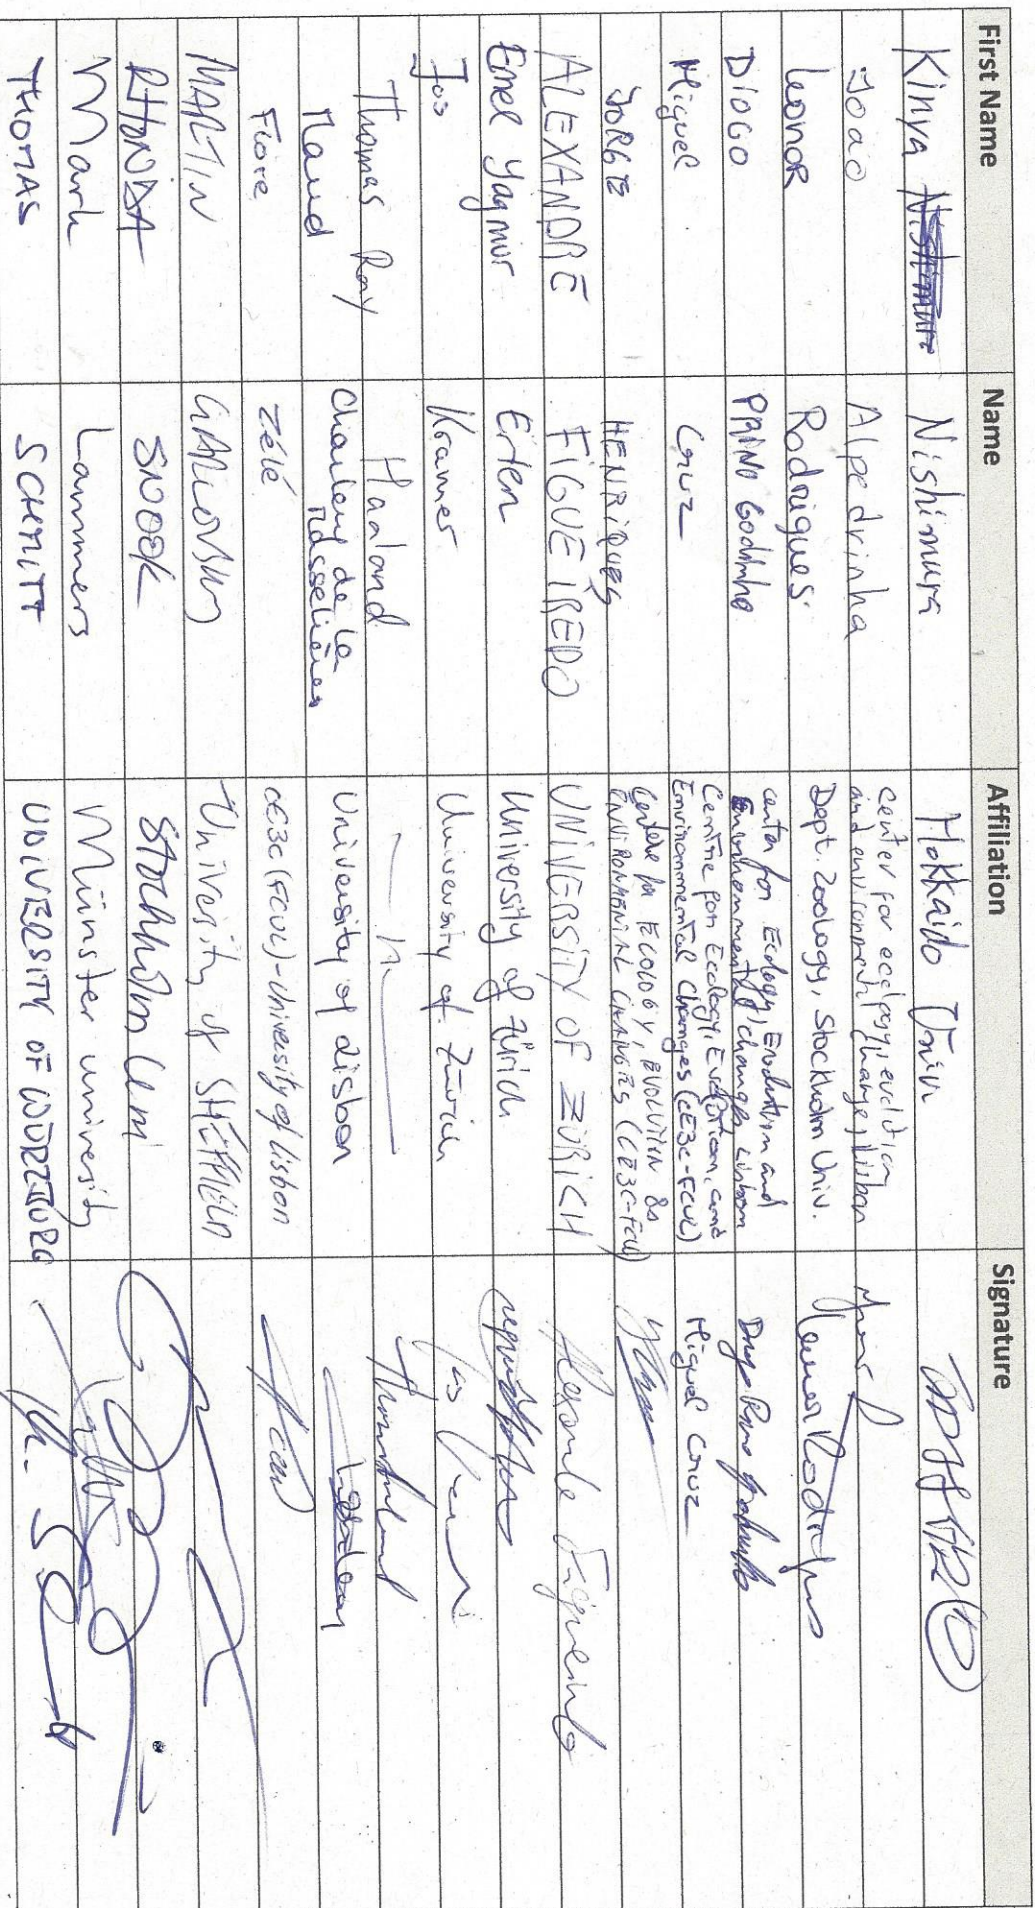 First Name Name Affiliation Signature
Kinya Nishimura Nishimura Hokkaido Univ
João Alpedrinha center for ecology, evolution
and environmental change, Lisbon
Leonor Rodrigues Dept. Zoology, Stockholm Univ. Leonor Rodrigues
DIOGO PRINO Godinho center for Ecology, Evolution and
Environmental changes, Lisbon
Miguel Cruz Centre for Ecology, Evolution, and
Environmental Changes (cE3c-FCUL) Miguel Cruz
JORGE HENRIQUES Centre for ECOLOGY, EVOLUTION &
ENVIRONMENTAL CHANGES (CE3C-FCUL)
ALEXANDRE FIGUEIREDO UNIVERSITY OF ZÜRICH Alexandre Figueiredo
Emel Yagmur Erten University of Zürich
Jos Kramer University of Zürich
Thomas Ray Haaland — " —
Maud Charlery de la
Masselière University of Lisbon
Fiore Zélé cE3c (FCUL) - University of Lisbon
MARTIN GARLOVSKY University of SHEFFIELD
RHONDA SNOOK Stockholm Uni
Mark Lammers Münster university
THOMAS SCHMITT UNIVERSITY OF WÜRZBURG